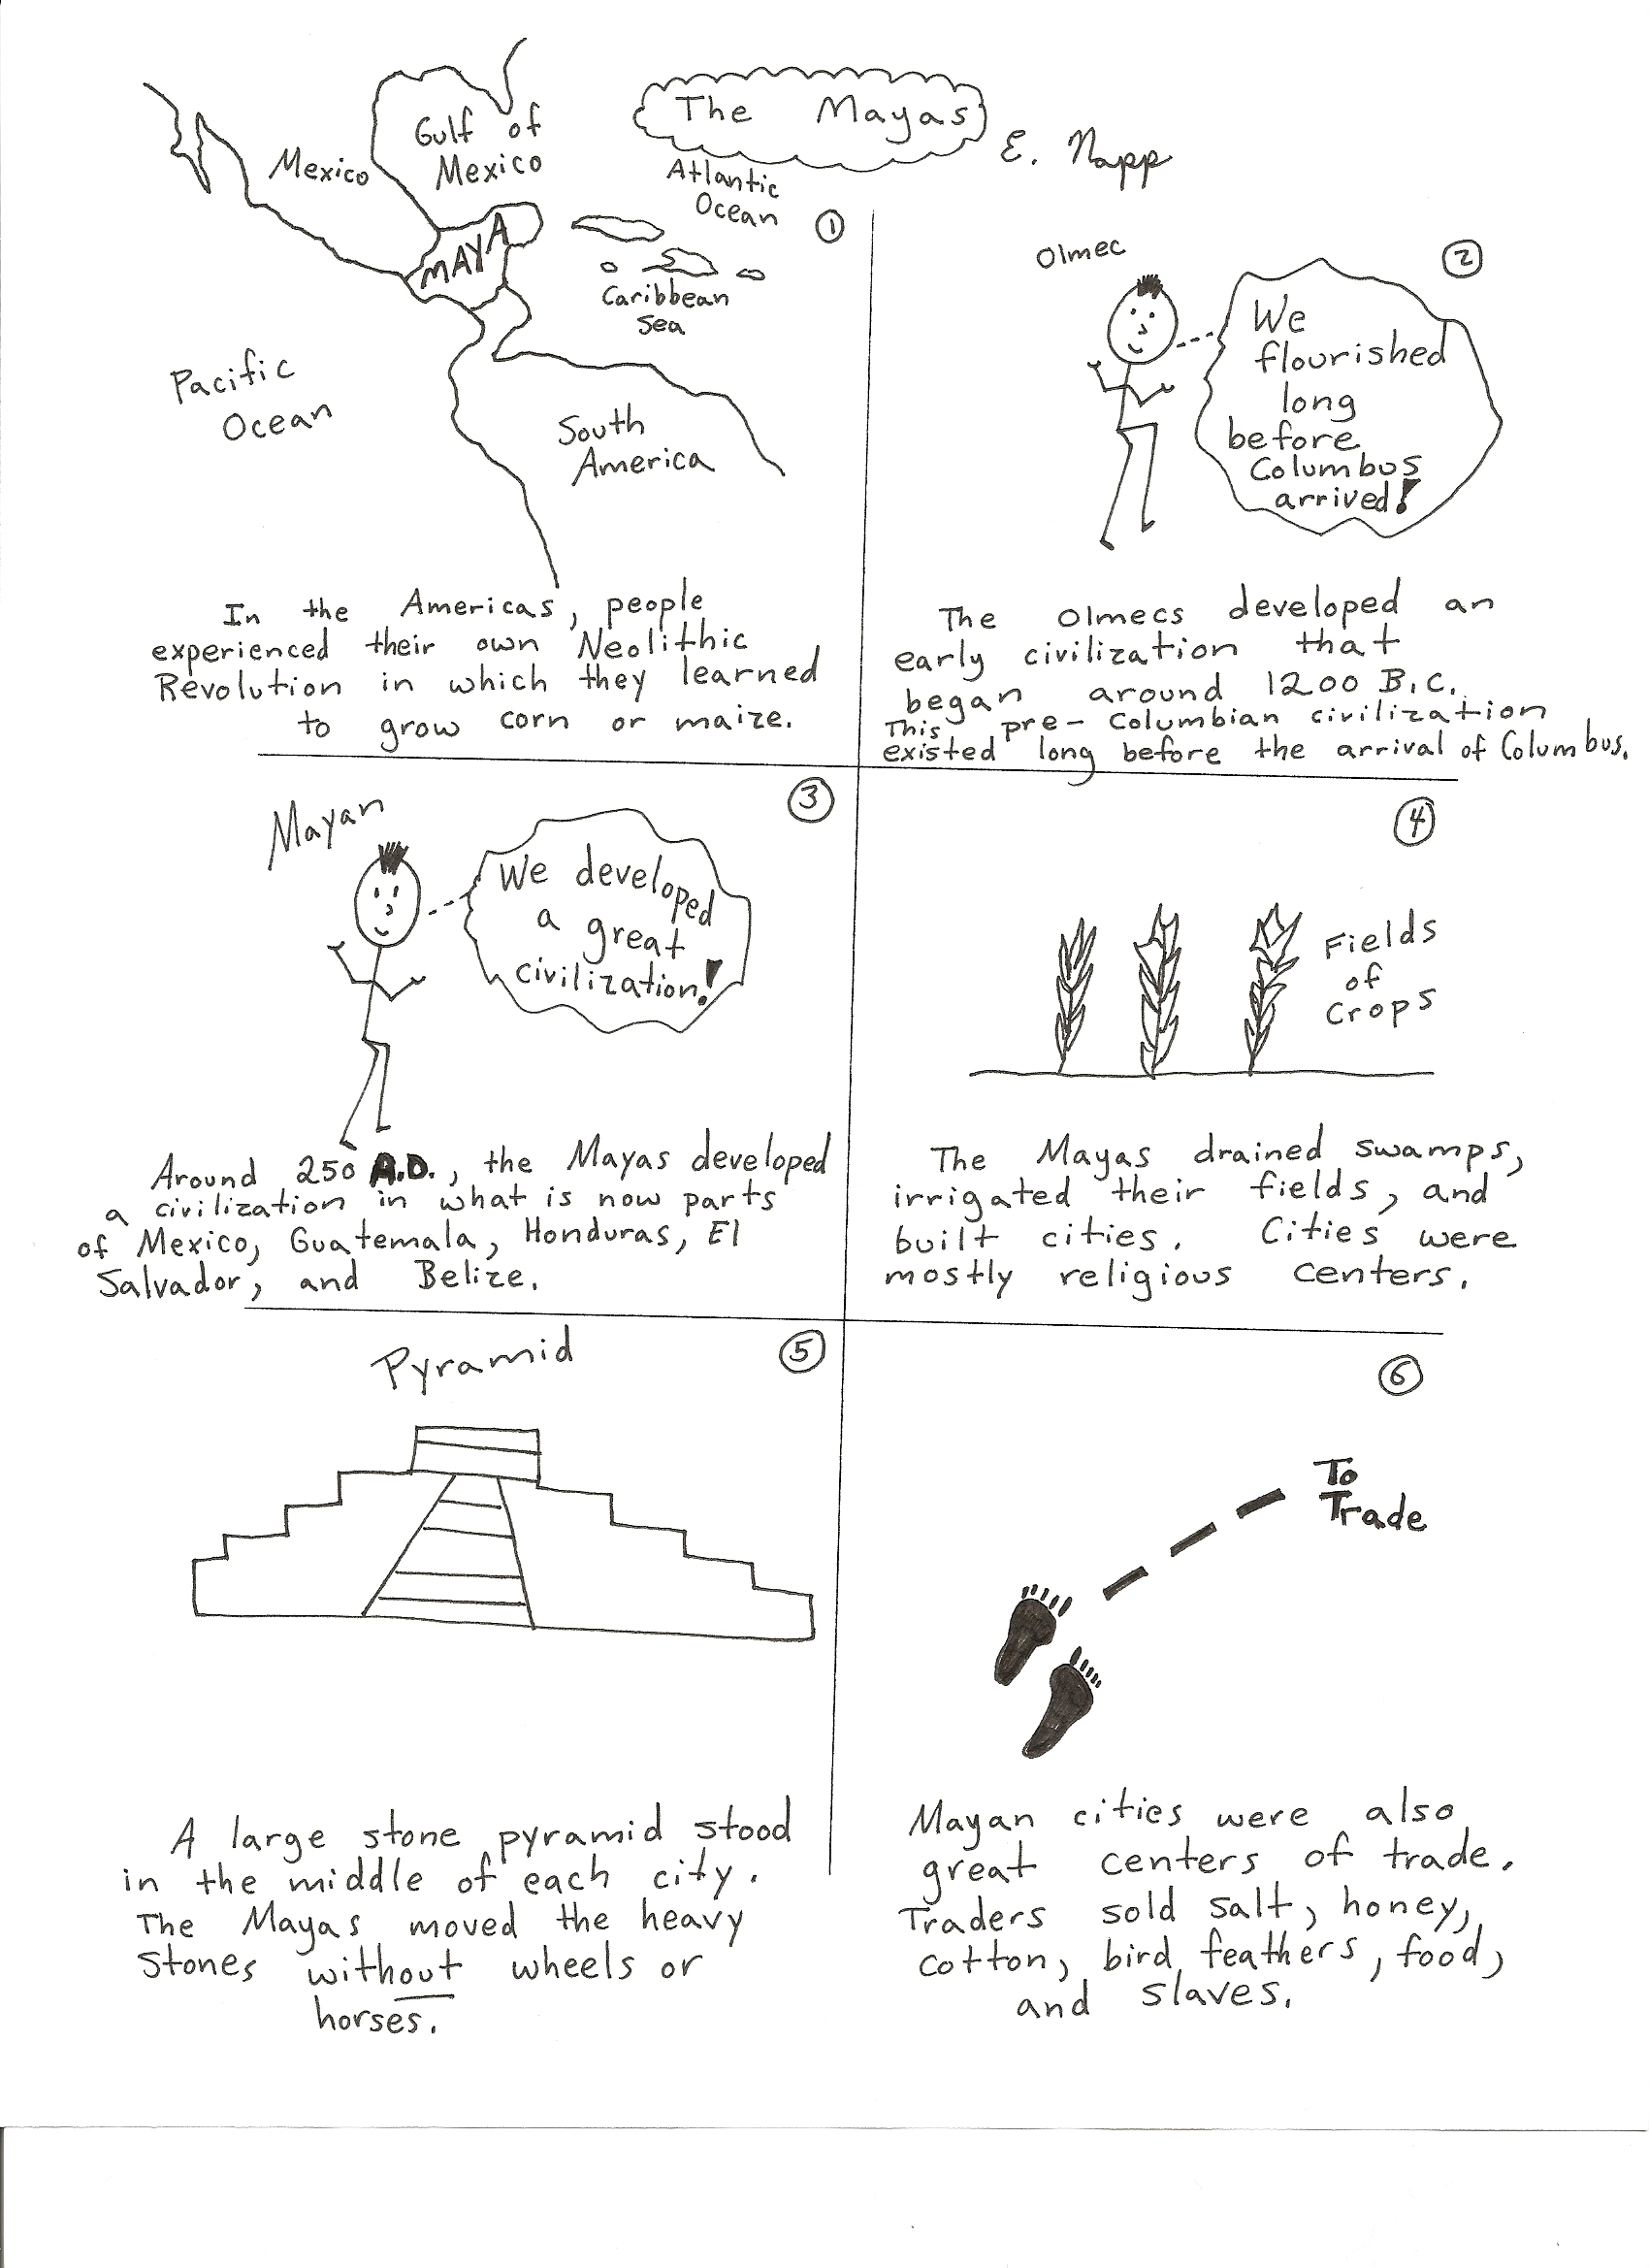 The Mayas
E. Napp
Gulf of
Mexico
Mexico
Atlantic
Ocean
MAYA
Caribbean
Sea
Pacific
Ocean
South
America
1
In the Americas, people
experienced their own Neolithic
Revolution in which they learned
to grow corn or maize.
2
Olmec
We
flourished
long
before
Columbus
arrived!
The Olmecs developed an
early civilization that
began around 1200 B.C.
This pre-Columbian civilization
existed long before the arrival of Columbus.
3
Mayan
We developed
a great
civilization!
Around 250 A.D., the Mayas developed
a civilization in what is now parts
of Mexico, Guatemala, Honduras, El
Salvador, and Belize.
4
Fields
of
Crops
The Mayas drained swamps,
irrigated their fields, and
built cities. Cities were
mostly religious centers.
5
Pyramid
A large stone pyramid stood
in the middle of each city.
The Mayas moved the heavy
stones without wheels or
horses.
6
To
Trade
Mayan cities were also
great centers of trade.
Traders sold salt, honey,
cotton, bird feathers, food,
and slaves.